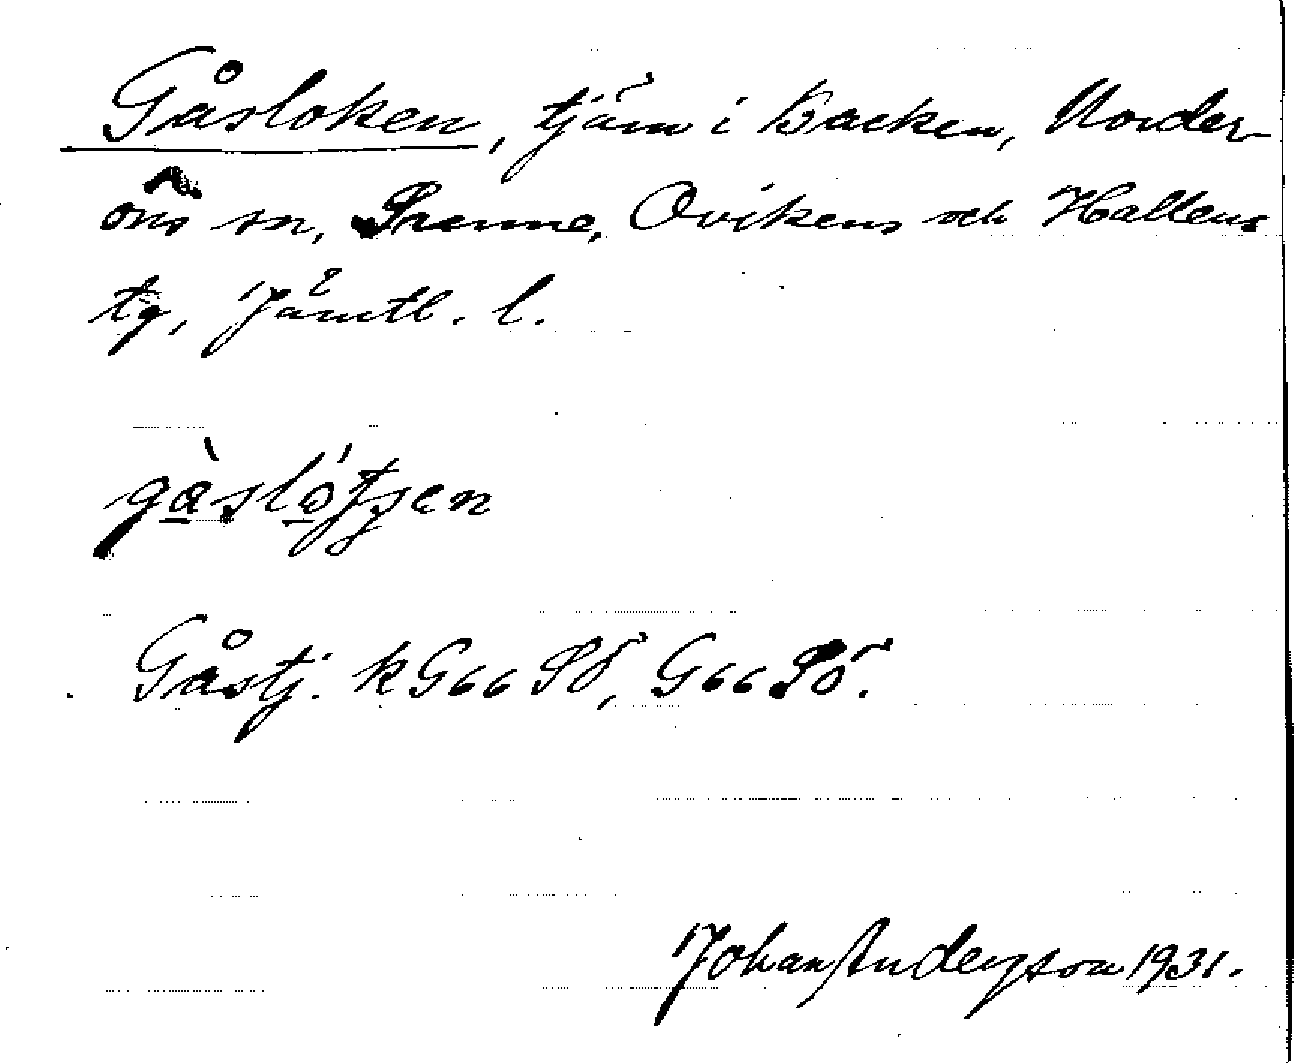 Gåsloken, tjärn i Backen, Norder-
öns sn, Sunne, Ovikens och Hallens
tg, Jämtl. l.
gàslo̱ʹtʃen
Gåstj. kG66SÖ, G66SÖ.
Johan Anderson 1931.